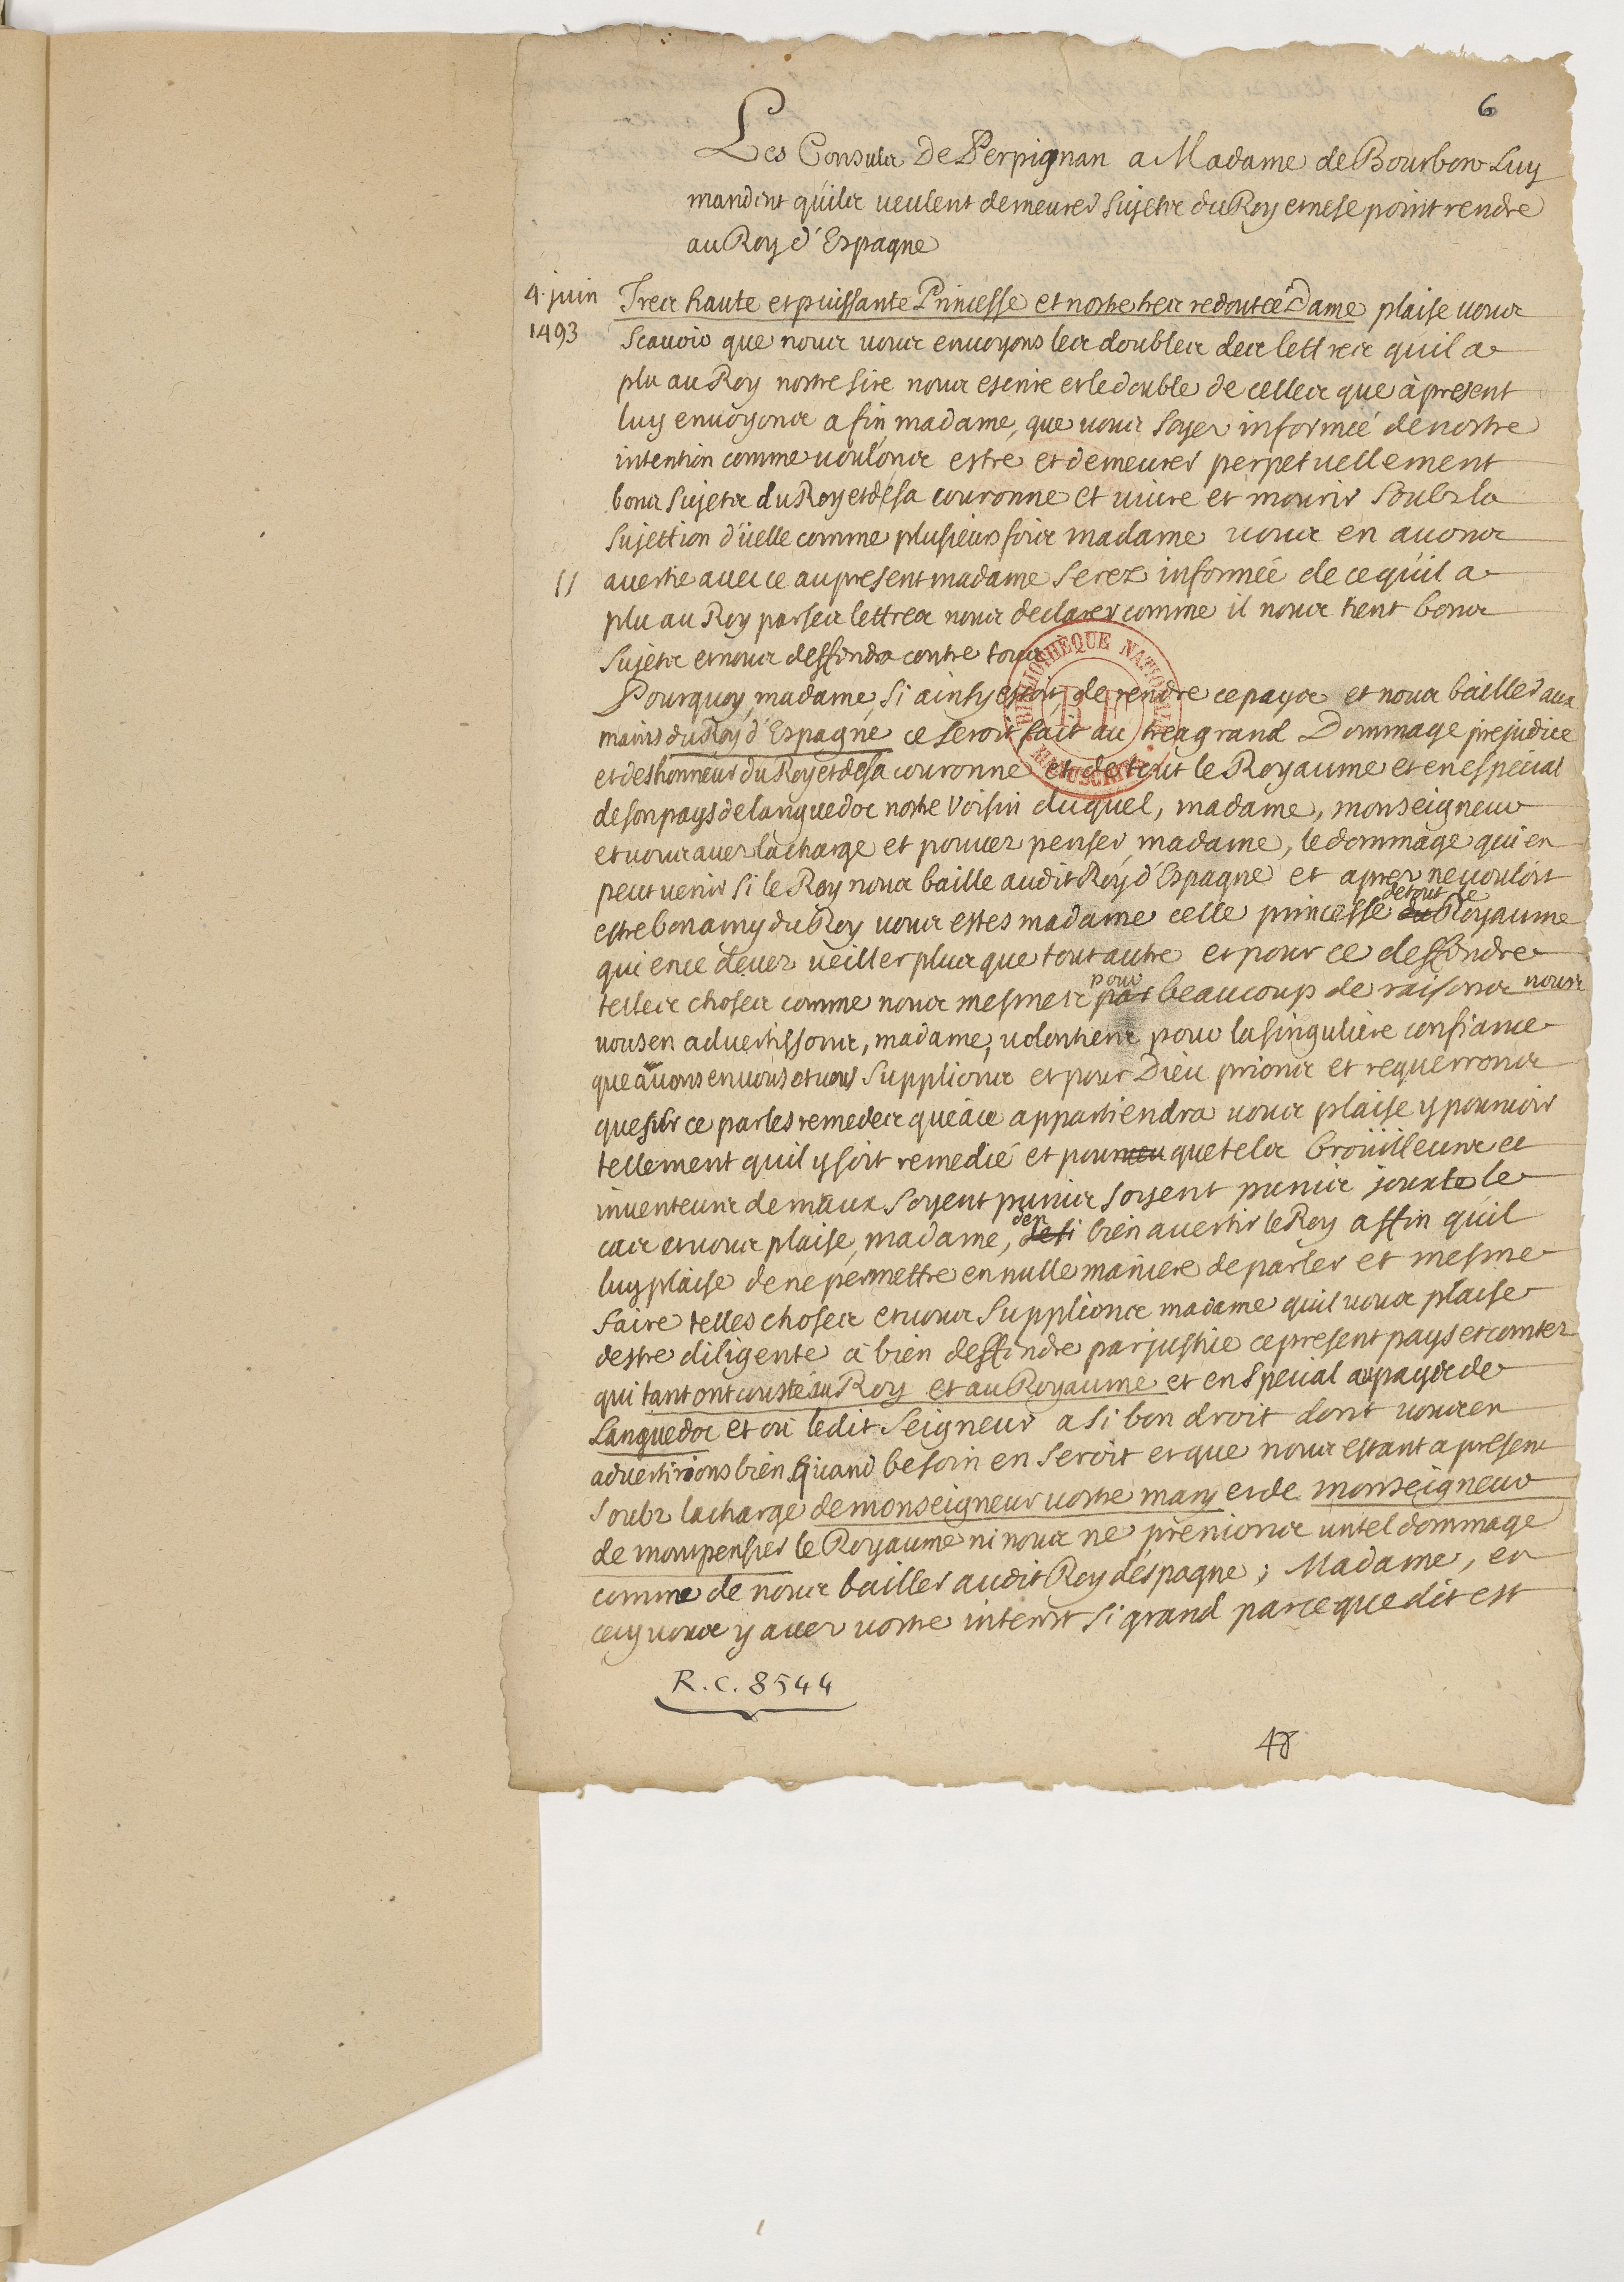 6
Les Consuls De Perpignan a Madame de Bourbon Luy
mandent quils veulent demeurer Sujets du Roy et ne se point rendre
au Roy d'Espagne
4. juin
1493
Tres haute et puissante Princesse et nostre tres redoutée Dame plaise vous
Scavoir que nous vous envoyons les doubles des lettres quil a
plu au Roy nostre sire nous escrire et le double de celles que à present
luy envoyons afin, madame, que vous soyez informée de nostre
intention comme voulons estre et demeurer perpetuellement
bons Sujets du Roy et de sa couronne et vivre et mourir Soubz la
Sujettion d'icelle comme plusieurs fois madame vous en avons
avertie avec ce au present madame Serez informée de ce qu'il a
plu au Roy par ses lettres nous declarer comme il nous tient bons
Sujets et nous deffendra contre tous
Pourquoy, madame, Si ainsy estoit, de rendre ce pays et nous bailler aux
mains du Roy d'Espagne ce seroit fait au tres grand Dommage prejudice
et deshonneur du Roy et de sa couronne et de tout le Royaume et en especial
de son pays de languedoc nostre voisin duquel, madame, monseigneur
et vous avez la charge et pouvez penser, madame, le dommage qui en
peut venir si le Roy nous baille audit Roy d'Espagne et apres ne vouloit
estre bon amy du Roy vous estes madame celle princesse du detout de Royaume
qui en ce devez veiller plus que tout autre et pour ce deffendre
telles choses comme nous mesmes par pour beaucoup de raisons nous
vous en advertissons, madame, volontiers pour la singuliere confiance
que avons en vous et vous Supplions et pour Dieu prions et requerrons
que sur ce par les remedes que à ce appartiendra vous plaise y pourvoir
tellement quil y soit remedié et pour que tels broüilleurs et
inventeurs de maux soyent punis soyent punis jouxte le
cas et vous plaise, madame, den bien avertir le Roy affin quil
luy plaise de ne permettre en nulle maniere de parler et mesme
faire telles choses et vous Supplions madame quil vous plaise
destre diligente à bien deffendre par justice ce present pays et comtez
qui tant ont cousté au Roy et au Royaume et en Special au pays de
Languedoc et où ledit Seigneur a si bon droit dont vous en
advertirions bien Quand besoin en seroit et que nous estant a present
Soubz la charge de monseigneur vostre mary et de monseigneur
de monpensier le Royaume ni nous ne prenions un tel dommage
comme de nous bailler audit Roy despagne; Madame, en
cecy vous y avez vostre interest si grand parce que dit est
R.C. 8544
BIBLIOTHÈQUE NATIONALE
MANUSCRITS